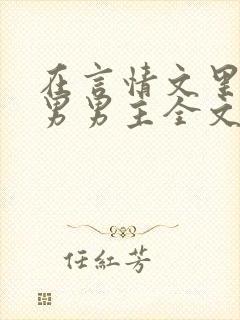 在言情文里
男男主全文
任紅芳